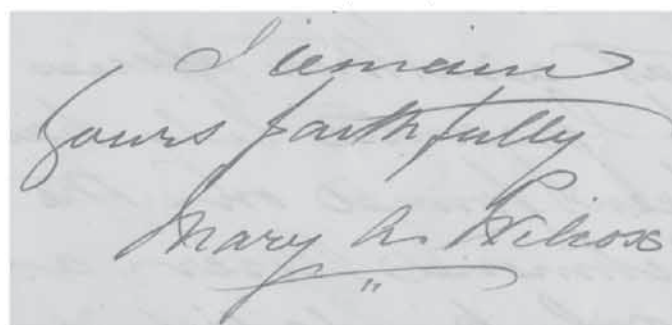 I remain
Yours faithfully
Mary A. Wilcox